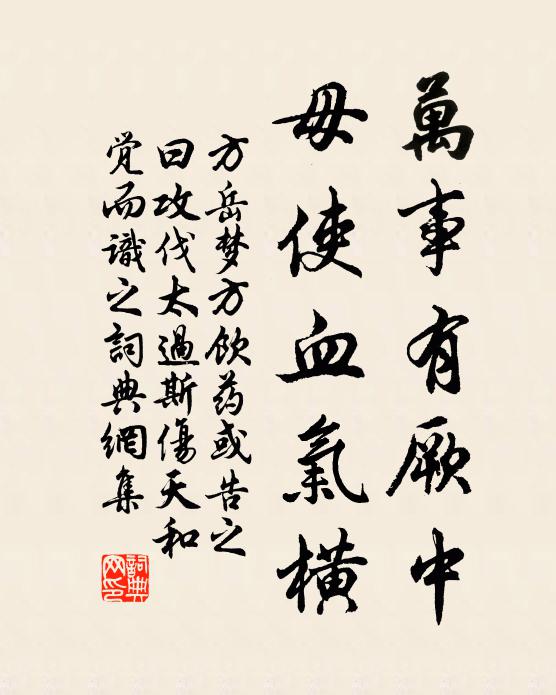 萬事有厥中
毋使血氣橫
方岳梦方飲药或告之
曰攻伐太過斯傷天和
觉而識之詞典網集
詞典
网印